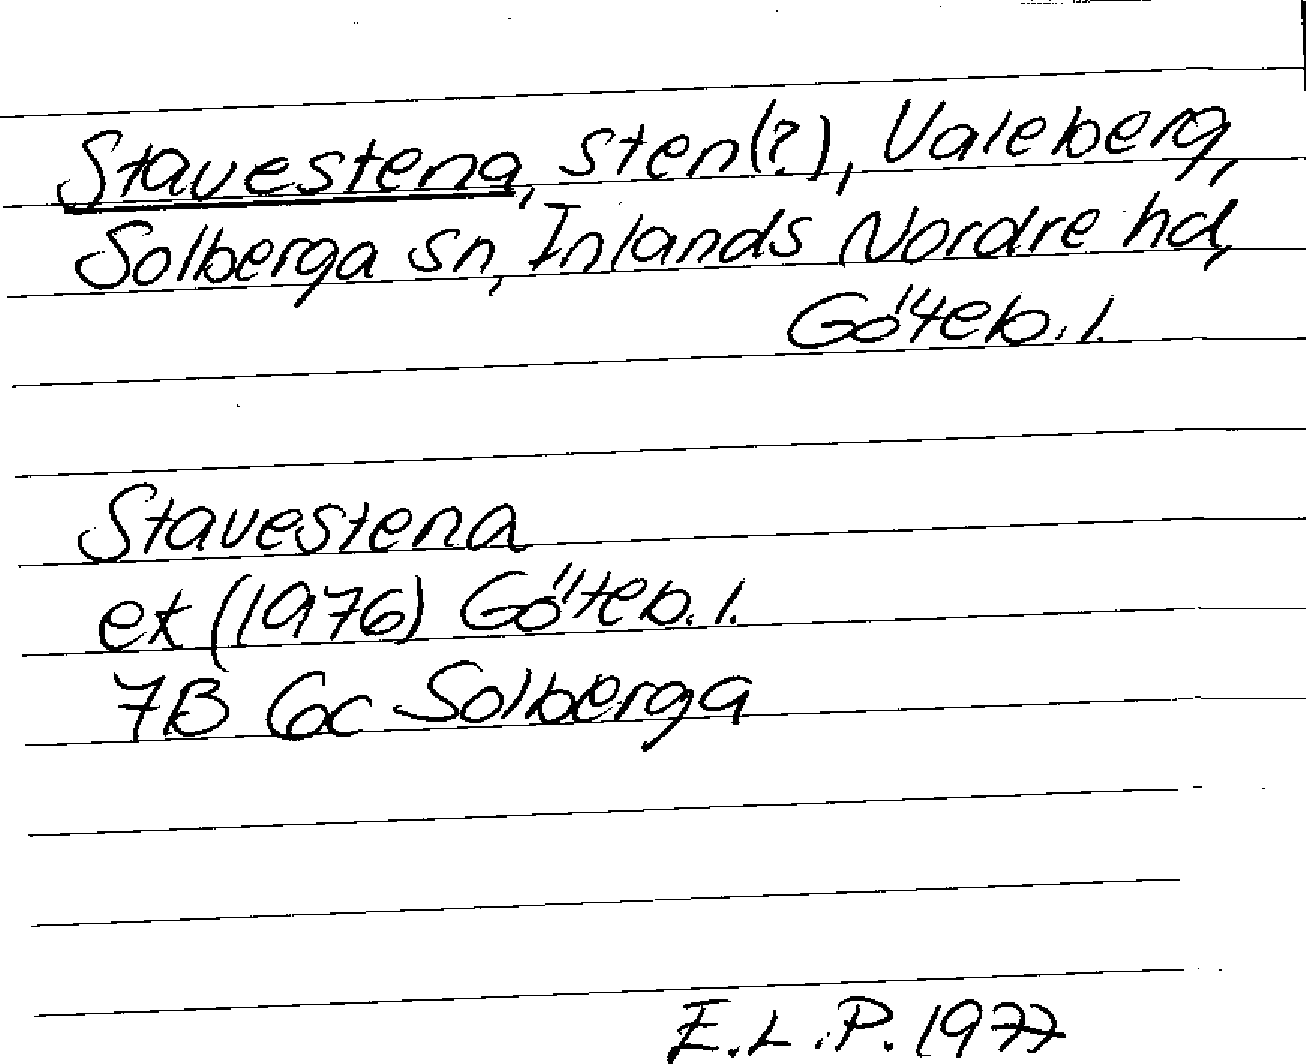 Stavestena, sten(?), Valeberg,
Solberga sn, Inlands Nordre hd,
Göteb. l.
Stavestena
ek (1976) Göteb. l.
7B 6c Solberga
E.L.P. 1977